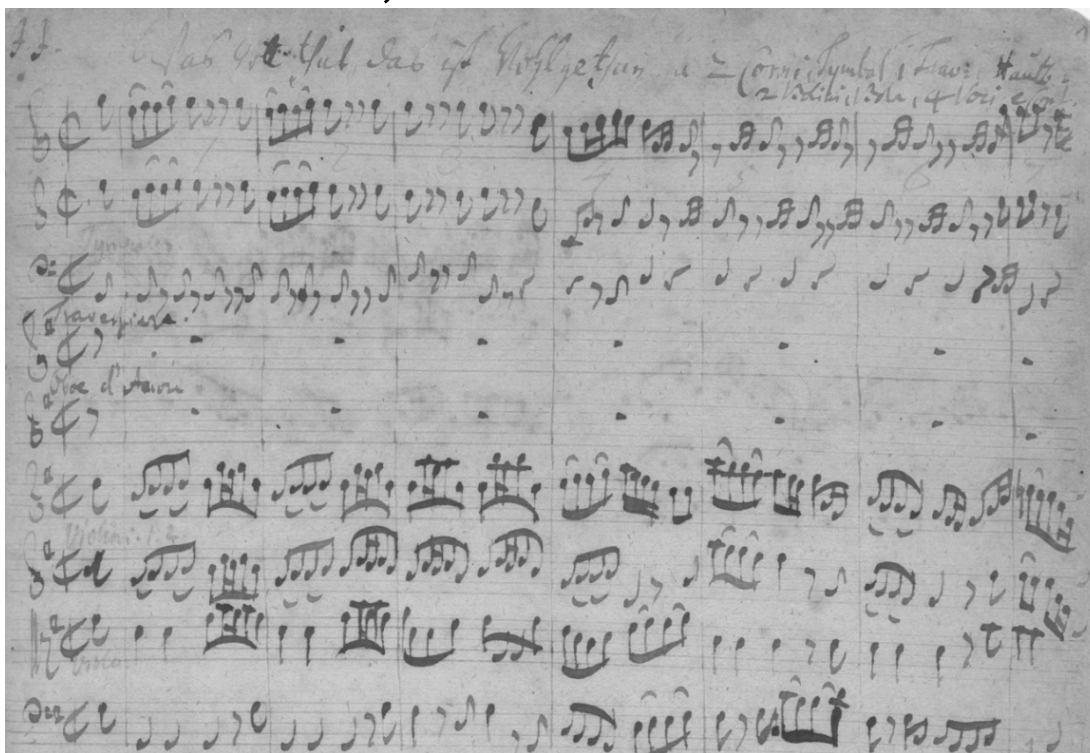 J. J. Was Gott thut, das ist Wohlgethan. a 2 Corni, Tymbal, 1 Trav: Hautb:
2 Violini, 4 Voci e
Tympales
Traversiere.
Hautb d'Amour
Violini. 1. 2.
Viola